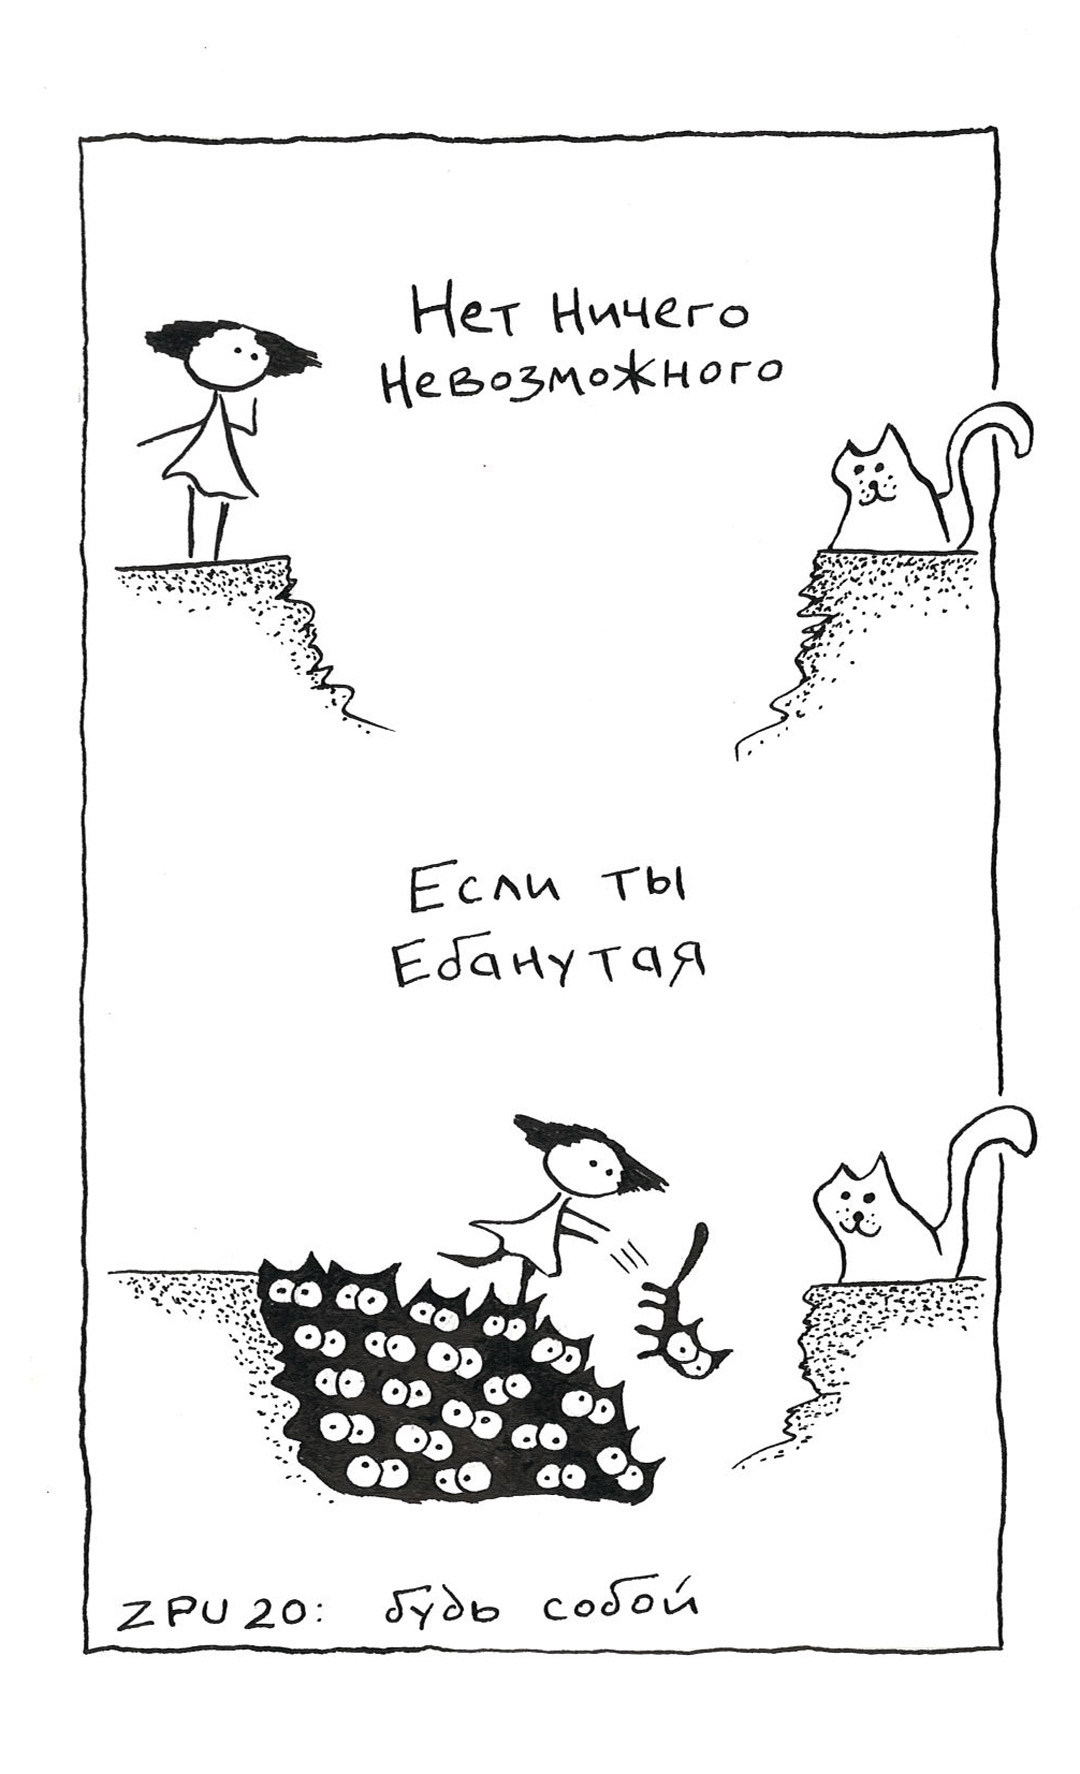 Нет Ничего
Невозможного
Если ты
Ебанутая
ZPU 20: будь собой